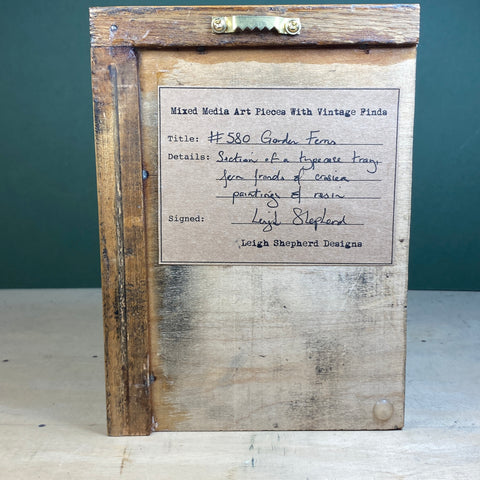 Mixed Media Art Pieces With Vintage Finds
Title: #580 Garden Ferns
Details: Section of a typecase tray,
fern fronds &
painting & resin
Signed: Leigh Shepherd
Leigh Shepherd Designs